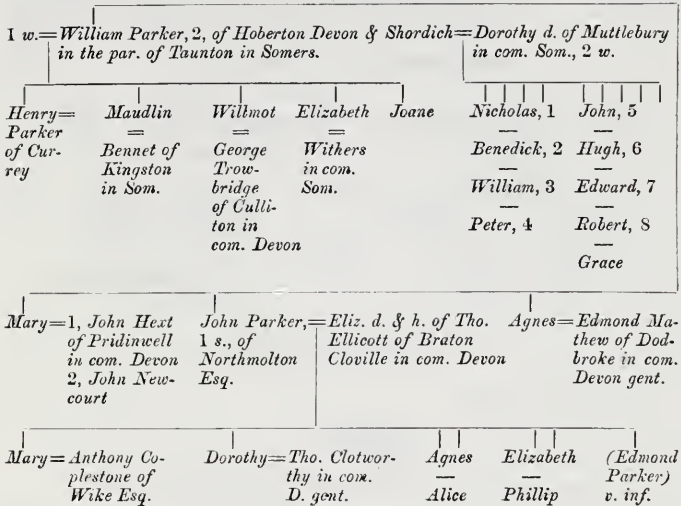 1 w.=William Parker, 2, of Hoberton Devon & Shordich=Dorothy d. of Muttlebury
in the par. of Taunton in Somers. in com. Som., 2 w.
Henry=
Parker
of Cur-
rey
Maudlin
=
Bennet of
Kingston
in Som.
Wiltmot
=
George
Trow-
bridge
of Culli-
ton in
com. Devon
Elizabeth
=
Withers
in com.
Som.
Joane
Nicholas, 1
—
Benedick, 2
—
William, 3
—
Peter, 4
John, 5
—
Hugh, 6
—
Edward, 7
—
Robert, 8
—
Grace
Mary=1, John Hext
of Pridinwell
in com. Devon
2, John New-
court
John Parker,=Eliz. d. & h. of Tho.
1 s., of Ellicott of Braton
Northmolton Cloville in com. Devon
Esq.
Agnes=Edmond Ma-
thew of Dod-
broke in com.
Devon gent.
Mary=Anthony Co-
plestone of
Wike Esq.
Dorothy=Tho. Clotwor-
thy in com.
D. gent.
Agnes
—
Alice
Elizabeth
—
Phillip
(Edmond
Parker)
v. inf.